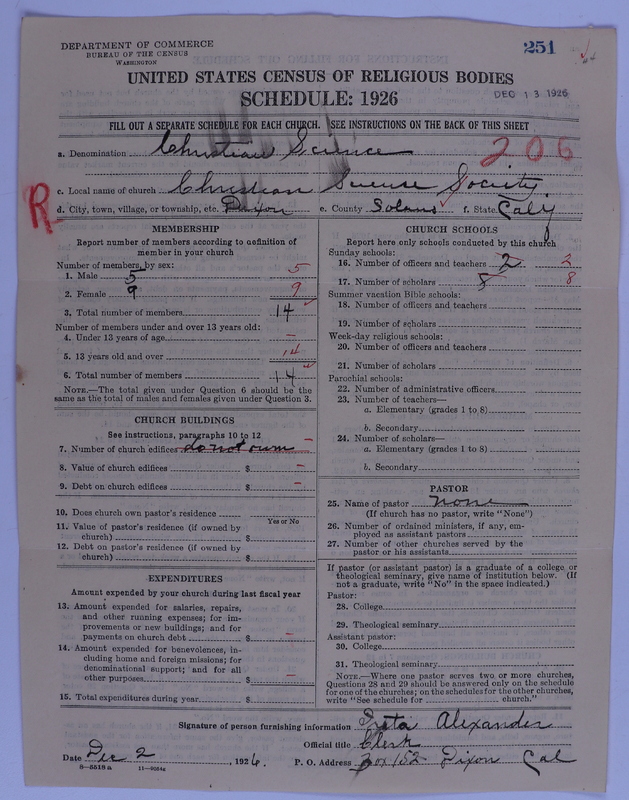 DEPARTMENT OF COMMERCE
BUREAU OF THE CENSUS
WASHINGTON
251
UNITED STATES CENSUS OF RELIGIOUS BODIES
SCHEDULE: 1926
DEC 13 1926
FILL OUT A SEPARATE SCHEDULE FOR EACH CHURCH. SEE INSTRUCTIONS ON THE BACK OF THIS SHEET
a. Denomination Christian Science 206
c. Local name of church Christian Science Society
R
d. City, town, village, or township, etc. Dixon e. County Solano f. State Caly
MEMBERSHIP
Report number of members according to definition of
member in your church
Number of members, by sex:
1. Male 5 5
2. Female 9 9
3. Total number of members 14
Number of members under and over 13 years old:
4. Under 13 years of age –
5. 13 years old and over 14
6. Total number of members 14
NOTE.—The total given under Question 6 should be the
same as the total of males and females given under Question 3.
CHURCH BUILDINGS
See instructions, paragraphs 10 to 12
7. Number of church edifices do not own –
8. Value of church edifices $ –
9. Debt on church edifices $ –
10. Does church own pastor's residence
Yes or No
11. Value of pastor's residence (if owned by
church) $
12. Debt on pastor's residence (if owned by
church) $
EXPENDITURES
Amount expended by your church during last fiscal year
13. Amount expended for salaries, repairs,
and other running expenses; for im-
provements or new buildings; and for
payments on church debt $ –
14. Amount expended for benevolences, in-
cluding home and foreign missions; for
denominational support; and for all
other purposes $ –
15. Total expenditures during year $
CHURCH SCHOOLS
Report here only schools conducted by this church
Sunday schools:
16. Number of officers and teachers 2 2
17. Number of scholars 8 8
Summer vacation Bible schools:
18. Number of officers and teachers
19. Number of scholars
Week-day religious schools:
20. Number of officers and teachers
21. Number of scholars
Parochial schools:
22. Number of administrative officers
23. Number of teachers—
a. Elementary (grades 1 to 8)
b. Secondary
24. Number of scholars—
a. Elementary (grades 1 to 8)
b. Secondary
PASTOR
25. Name of pastor None
(If church has no pastor, write "None")
26. Number of ordained ministers, if any, em-
ployed as assistant pastors
27. Number of other churches served by the
pastor or his assistants
If pastor (or assistant pastor) is a graduate of a college or
theological seminary, give name of institution below. (If
not a graduate, write "No" in the space indicated.)
Pastor:
28. College
29. Theological seminary
Assistant pastor:
30. College
31. Theological seminary
NOTE.—Where one pastor serves two or more churches,
Questions 28 and 29 should be answered only on the schedule
for one of the churches; on the schedules for the other churches,
write "See schedule for church."
Signature of person furnishing information Alexander
Official title Clerk
Date Dec 2, 1926. P. O. Address Box 152 Dixon Cal
8—5518a 11—9064a